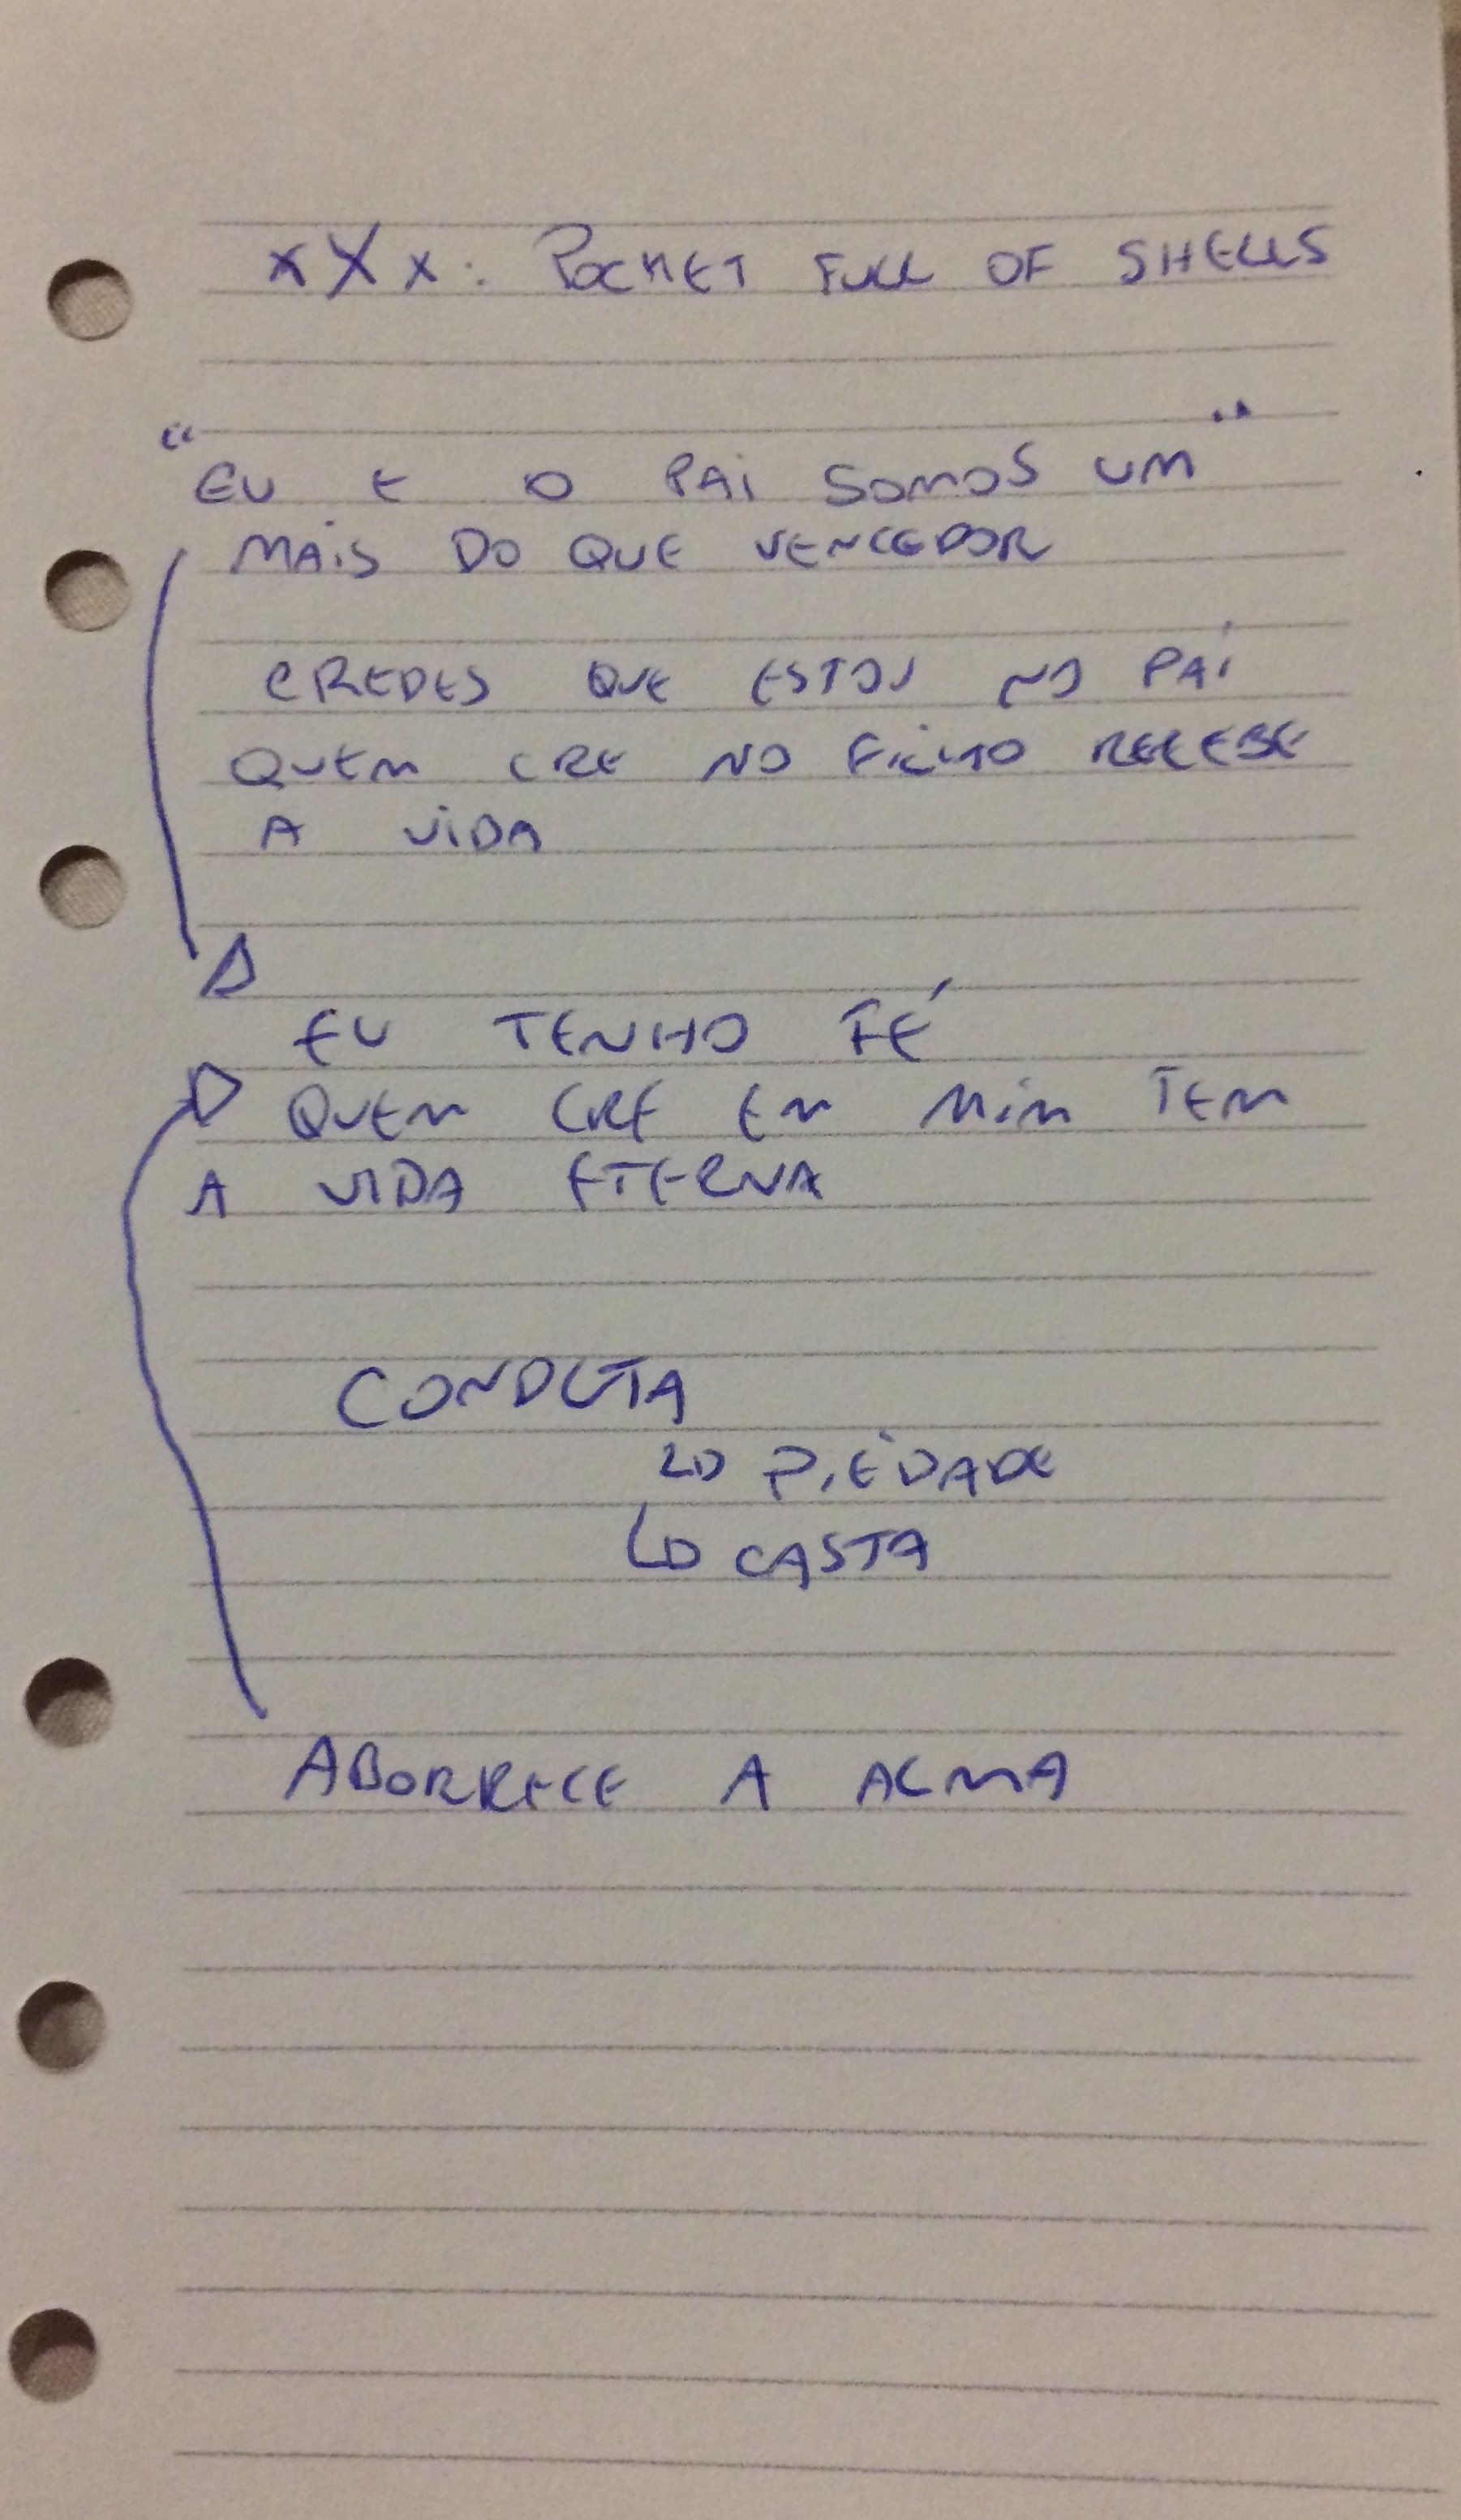 xXx: POCKET FULL OF SHELLS
"EU E O PAi SOMOS UM"
MAiS DO QUE VENCEDOR
CREDES QUE ESTOU NO PAi
QUEM CRE NO FiLHO RECEBE
A ViDA
EU TENHO FÉ
QUEM CRE EM MiM TEM
A VIDA ETERNA
CONDUTA
PiEDADE
CASTA
ABORRECE A ALMA